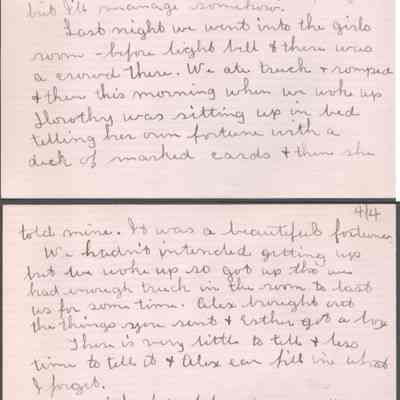 but I'll manage somehow.
Last night we went into the girls
room - before light bell & there was
a crowd there. We ate truck & romped
& then this morning when we woke up
Dorothy was sitting up in bed
telling her own fortune with a
deck of marked cards & then she
4/4
told mine. It was a beautiful fortune.
We hadn't intended getting up
but we woke up so got up tho we
had enough truck in the room to last
us for some time. Alex brought out
the things you sent & Esther got a box
There is very little to tell & less
time to tell it & Alex can fill in what
I forget.